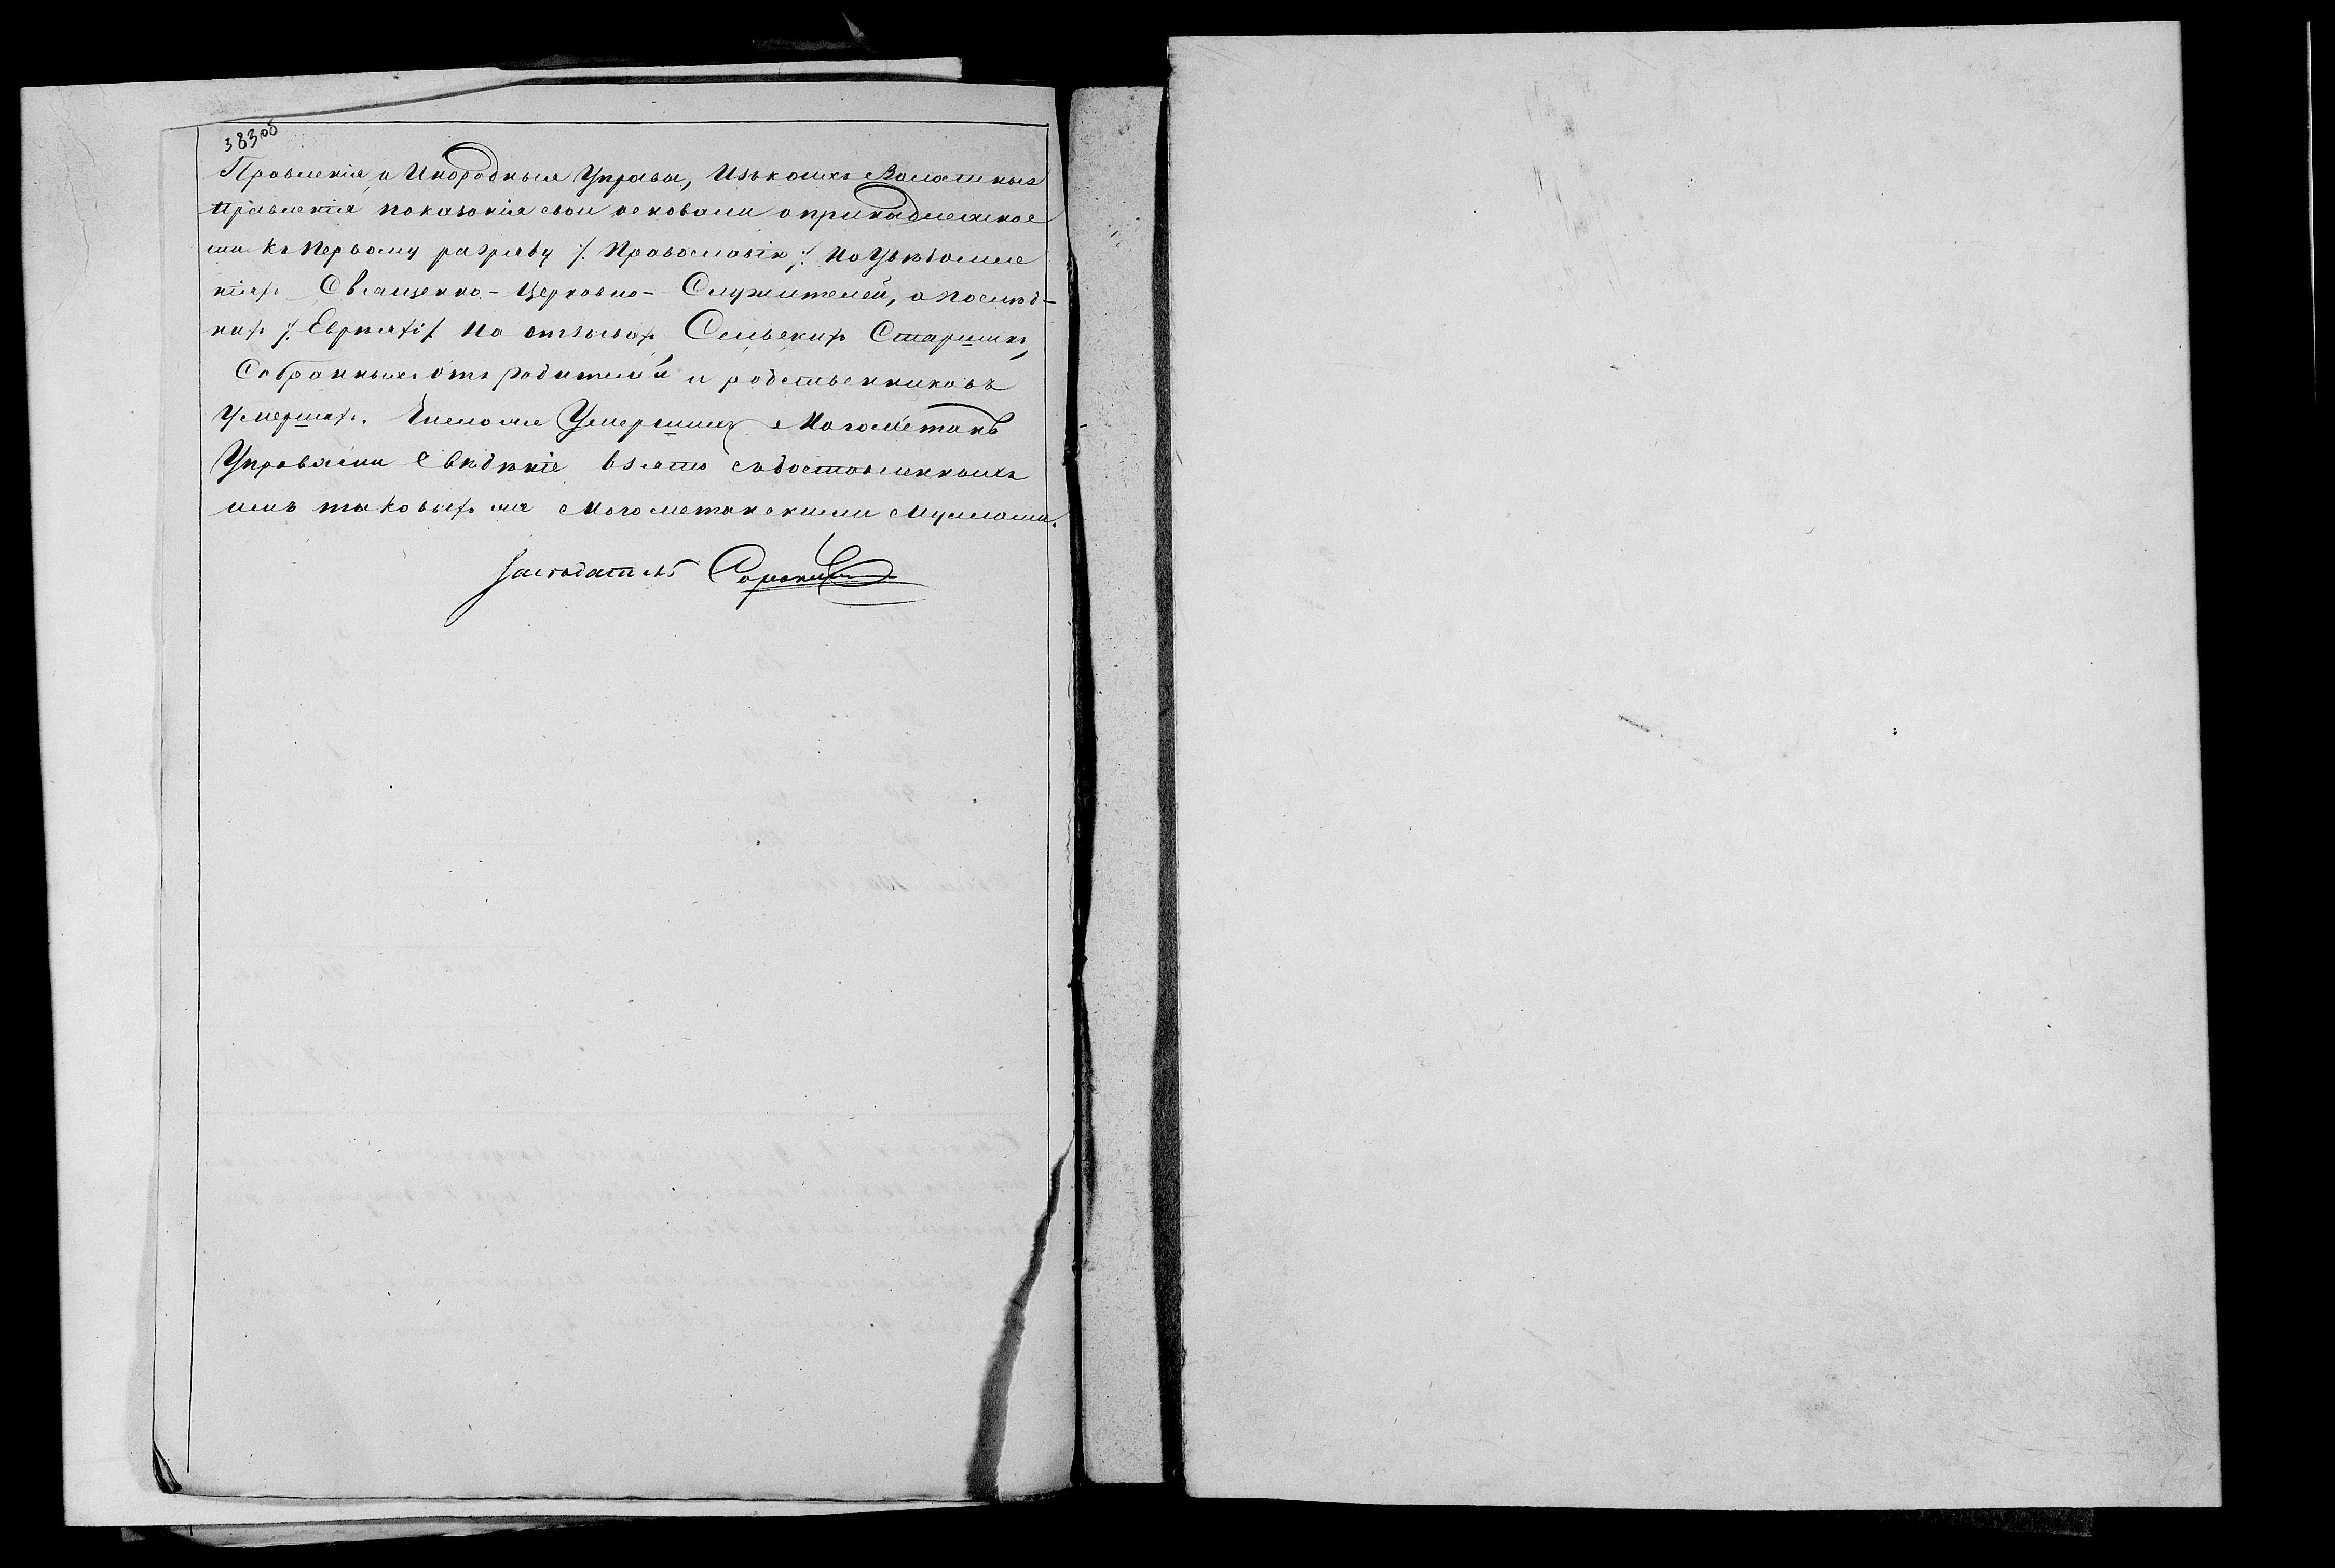 383об
Правленія и Инородныя Управы, Изъ коихъ Волостныя
Правленія показанія свои основали о принадлежнос
ти къ Первому разряду /: Православія :/ по Увѣдомле
ніяхъ Священно-Церковно-Служителей, о послѣд-
нихъ /: Евреяхъ :/ на отзывахъ Сельскихъ Старшинъ,
Собранныхъ отъ родителей и родственниковъ
Умершихъ. Числомъ Умершихъ Магометанъ
Управами Свѣдѣніе взято съ доставленныхъ
имъ таковыхъ Магометанскими Муллами.
Засѣдатель